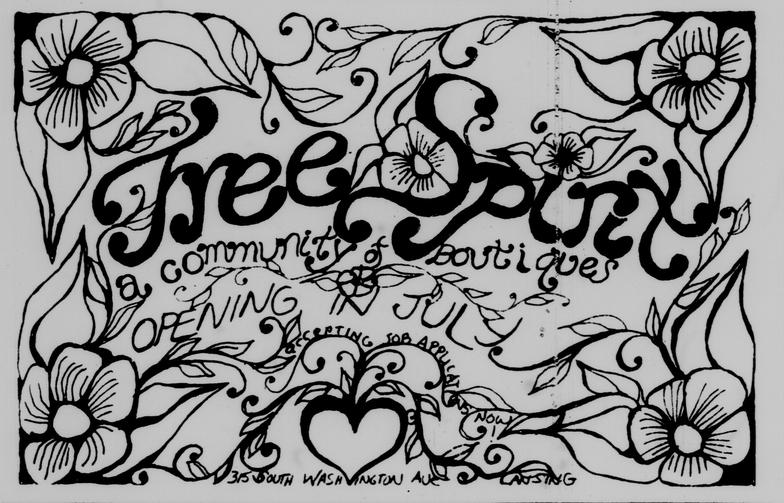 Free Spirit
a community of Boutiques
OPENING IN JULY
ACCEPTING JOB APPLICATIONS NOW!
315 SOUTH WASHINGTON AVE LANSING